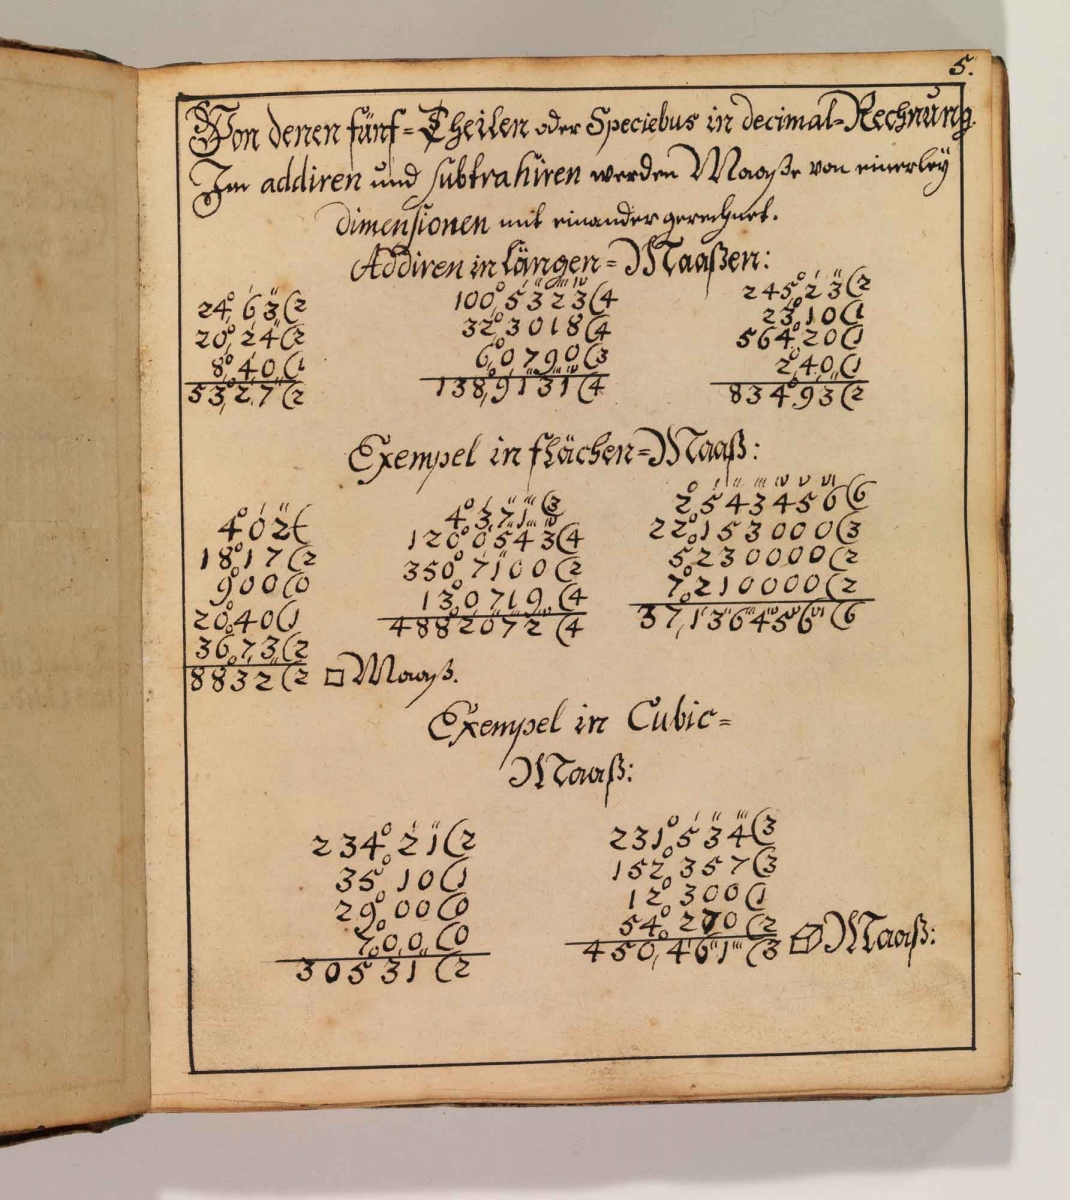 5.
Von denen fünf=Theilen oder Speciebus in decimal=Rechnung.
Im addiren und subtrahiren werden Maaße von einerley
dimensionen mit einander gerechnet.
Addiren in Längen=Maaßen:
24,° 6' 3''(2
20,° 24(2
8,° 4' 0(1
53,° 2' 7''(2
100,° 5' 3'' 2''' 3''''(4
32,° 3018(4
6,° 0790(3
138,° 9' 1'' 3''' 1''''(4
245,° 2' 3''(2
23,° 10(1
564,° 20(1
2,° 40(1
834,° 9' 3''(2
Exempel in flächen=Maaß:
4° 0' 2''(
18° 17(2
9° 00(0
20° 40(1
36° 7 3(2
88° 3' 2''(2 □ Maaß.
4° 3' 7'' 1'''(3
120° 0' 5'' 4''' 3''''(4
350° 7100(2
13° 0719(4
488° 2' 0'' 7''' 2''''(4
2° 5' 4'' 3''' 4'''' 5v 6vı(6
22° 153000(3
5° 230000(2
7° 210000(2
37,° 1' 3'' 6''' 4'''' 5v 6vı(6
Exempel in Cubic=
Maaß:
234° 2' 1''(2
35° 10(1
29° 00(0
7° 00(0
305° 3' 1''(2
231° 5' 3'' 4'''(3
152° 357(3
12° 300(1
54° 270(2
450,° 4' 6'' 1'''(3 Maaß: